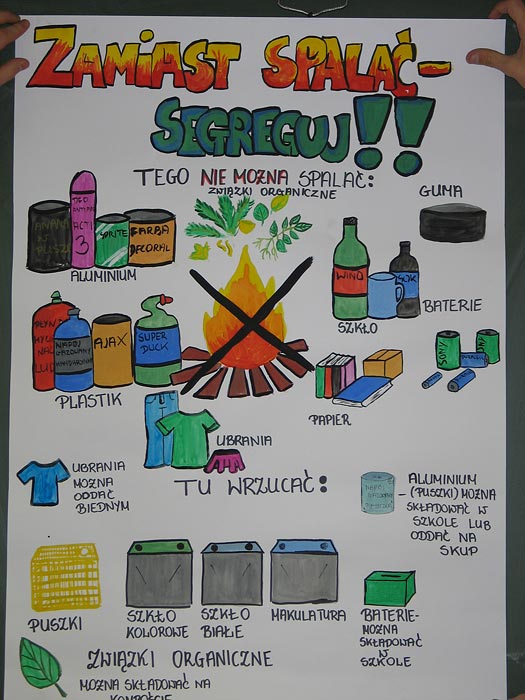 ZAMIAST SPALAĆ-
SEGREGUJ!!
TEGO NIE MOŻNA SPALAĆ:
ZWIĄZKI ORGANICZNE
GUMA
ACTI
3
SPRITE
FARBA
DECORAL
ALUMINIUM
WINO
SOK
SZKŁO
BATERIE
PŁYN
NAPÓJ
GAZOWANY
AJAX
SUPER
DUCK
PLASTIK
SONY
PAPIER
UBRANIA
UBRANIA
MOŻNA
ODDAĆ
BIEDNYM
TU WRZUCAĆ:
ALUMINIUM
- (PUSZKI) MOŻNA
SKŁADOWAĆ W
SZKOLE LUB
ODDAĆ NA
SKUP
PUSZKI
SZKŁO
KOLOROWE
SZKŁO
BIAŁE
MAKULATURA
BATERIE-
MOŻNA
SKŁADOWAĆ
W
SZKOLE
ZWIĄZKI ORGANICZNE
MOŻNA SKŁADOWAĆ NA
KOMPOŚCIE